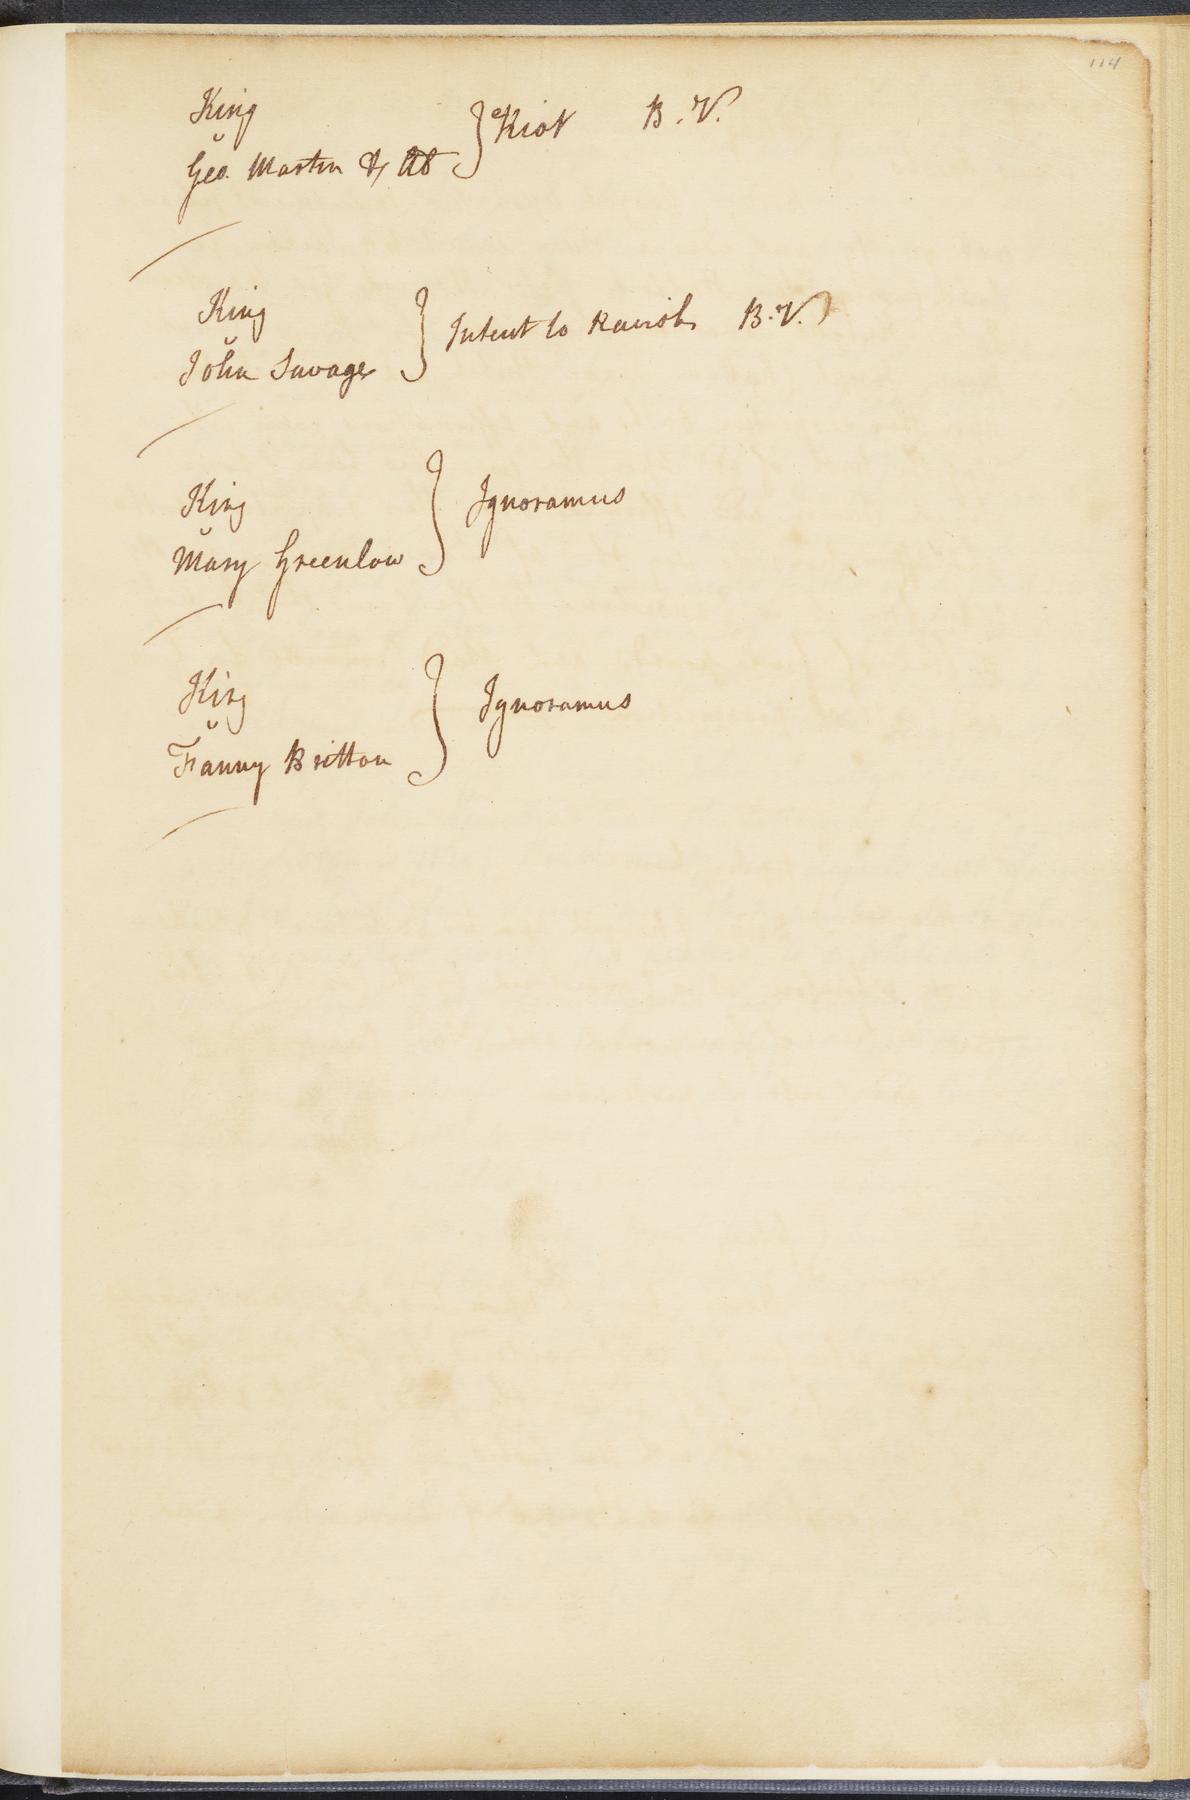 114
King
v
Geo. Martin & Al
} Riot B. V.
King
v
John Savage
} Intent to Ravish B. V.
King
v
Mary Greenlow
} Ignoramus
King
v
Fanny Britton
} Ignoramus